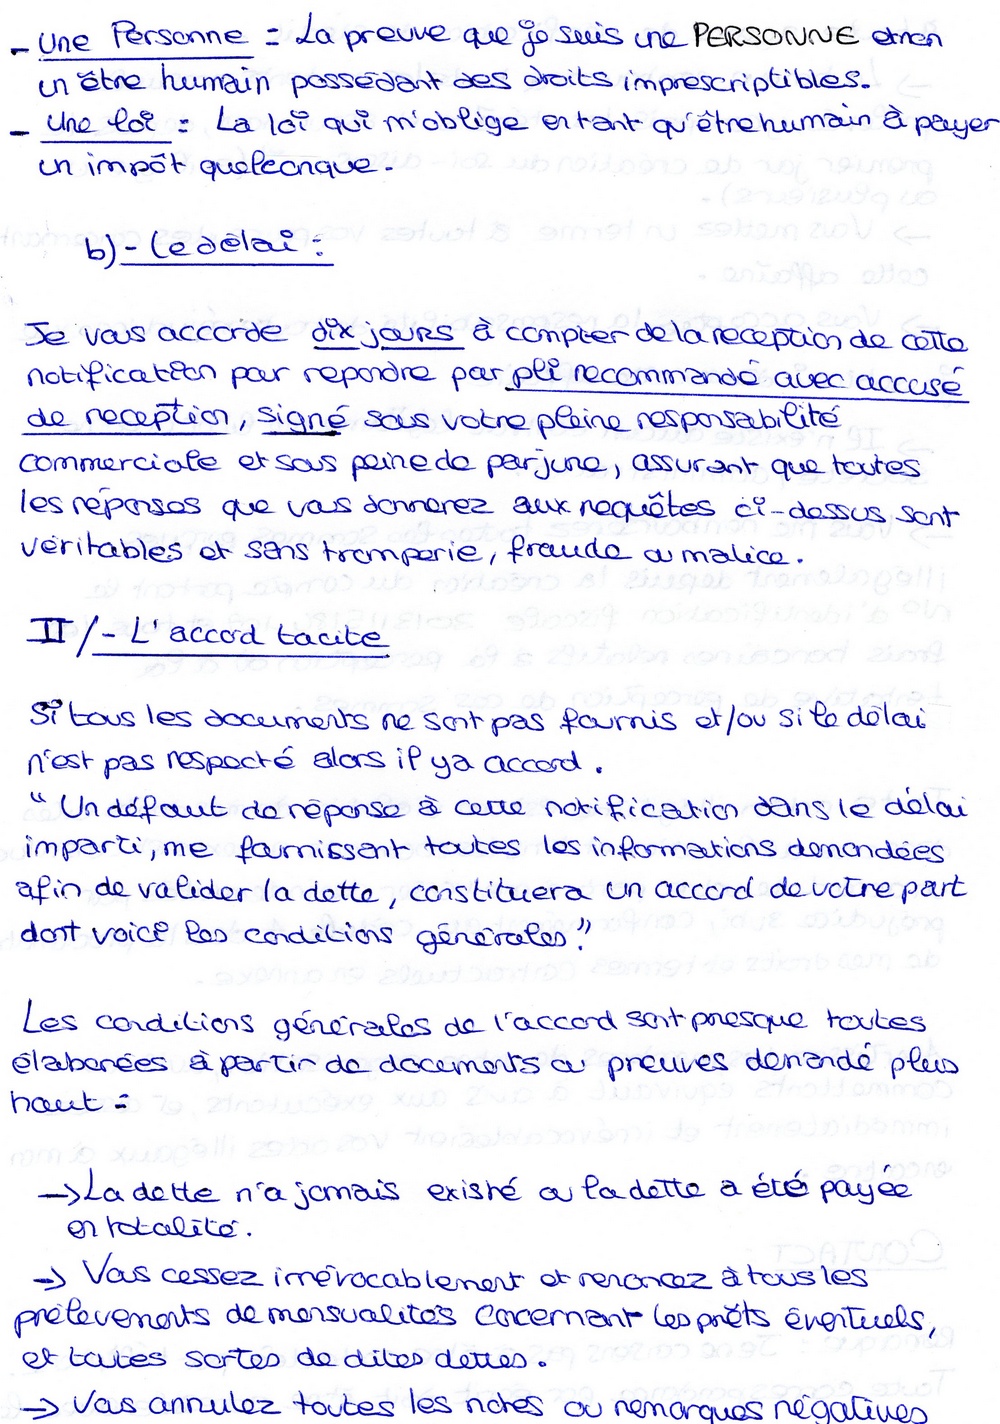 - Une Personne : La preuve que je suis une PERSONNE et non
un être humain possédant des droits imprescriptibles.
- Une loi : La loi qui m'oblige en tant qu'être humain à payer
un impôt quelconque.
b)- Le délai :
Je vous accorde dix jours à compter de la reception de cette
notification pour repondre par pli recommandé avec accusé
de reception, signé sous votre pleine responsabilité
commerciale et sous peine de parjure, assurant que toutes
les réponses que vous donnerez aux requêtes ci-dessus sont
véritables et sans tromperie, fraude ou malice.
II/- L'accord tacite
Si tous les documents ne sont pas fournis et/ou si le délai
n'est pas respecté alors il y a accord.
" Un défaut de réponse à cette notification dans le délai
imparti, me fournissant toutes les informations demandées
afin de valider la dette, constituera un accord de votre part
dont voici les conditions générales."
Les conditions générales de l'accord sont presque toutes
élaborées à partir de documents ou preuves demandé plus
haut :
-> La dette n'a jamais existé ou la dette a été payée
en totalité.
-> Vous cessez irrévocablement et renoncez à tous les
prélèvements de mensualités concernant les prêts éventuels,
et toutes sortes de dites dettes.
-> Vous annulez toutes les notes ou remarques négatives